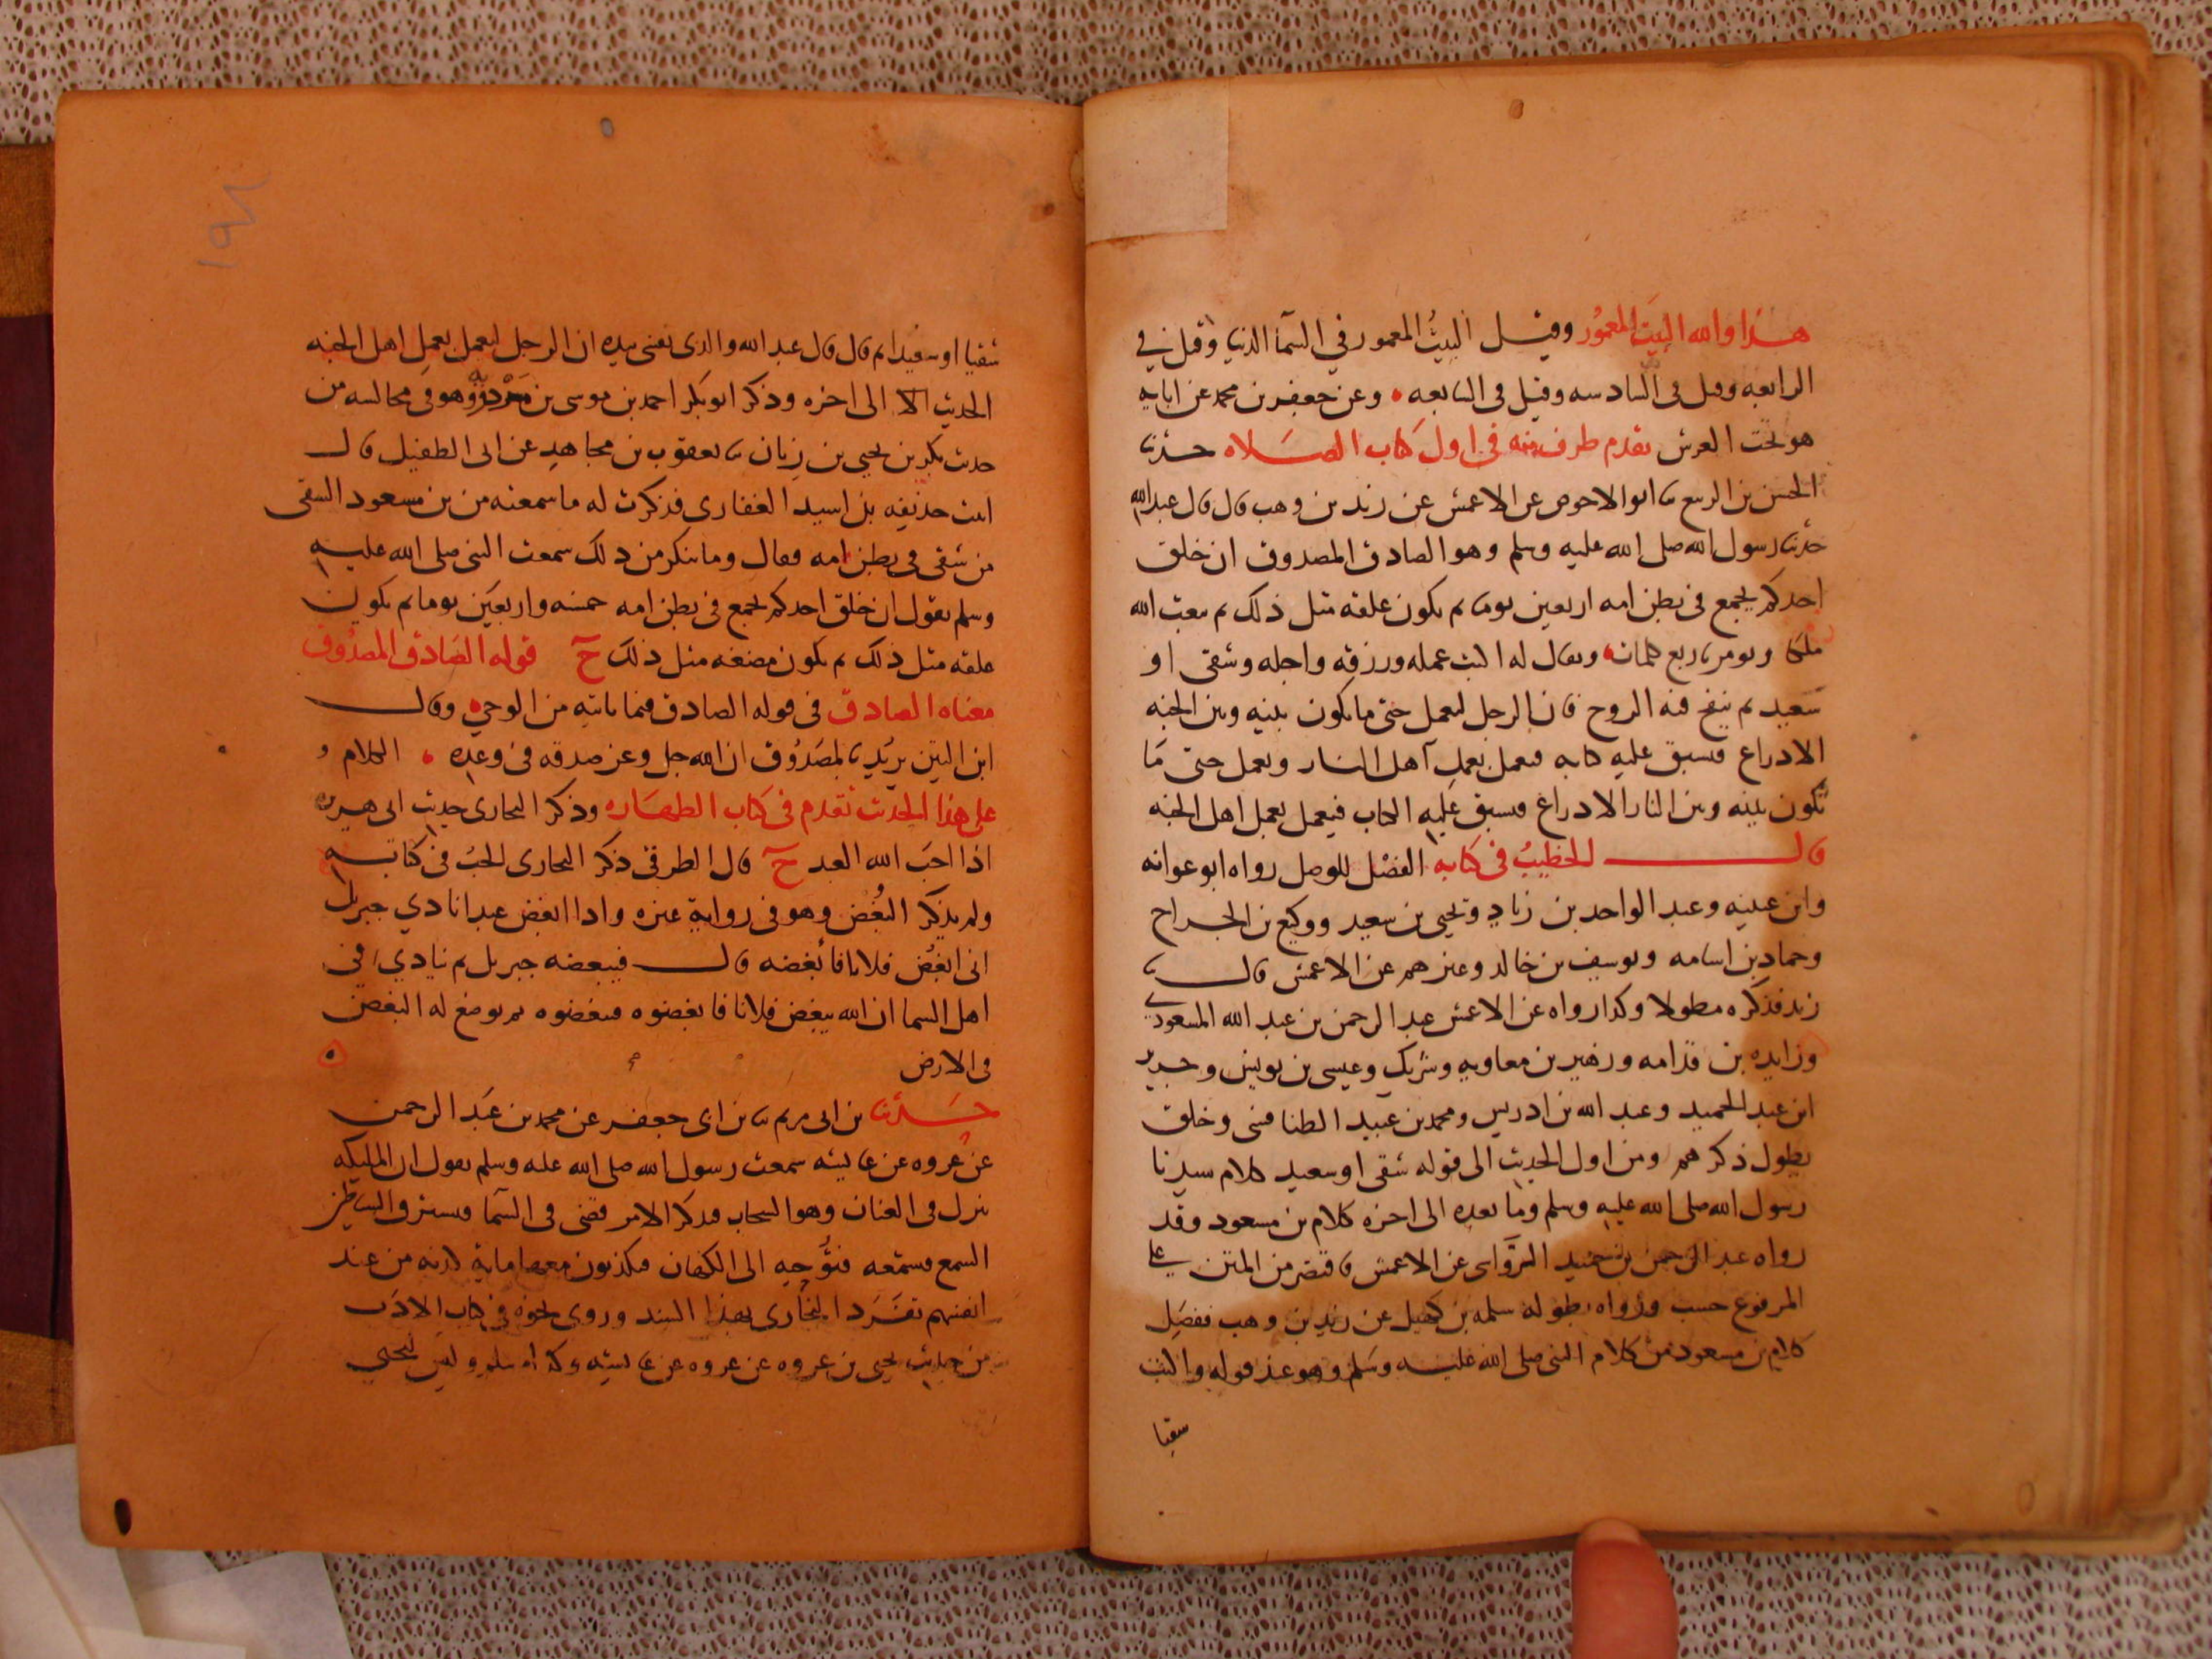 هذا والله البيت المعمور وقيل البيت المعمور في السما الدنيا وقيل في
الرابعه وقيل في السادسه وقيل في السابعه وعن جعفر بن محمد عن ابايه
هو تحت العرش تقدم طرف منه في اول كتاب الصلاه حدثنا
الحسن بن الربيع ثنا ابو الاحوص عن الاعمش عن زيد بن وهب قال قال عبد الله
حدثنا رسول الله صلى الله عليه وسلم وهو الصادق المصدوق ان خلق
احدكم يجمع في بطن امه اربعين يوما ثم يكون علقه مثل ذلك ثم يبعث الله
ملكا ويومر باربع كلمات ويقال له اكتب عمله ورزقه واجله وشقي او
سعيد ثم ينفخ فيه الروح فان الرجل ليعمل حتى ما يكون بينه وبين الجنه
الا ذراع فيسبق عليه كتابه فيعمل بعمل اهل النار ويعمل حتى ما
يكون بينه وبين النار الا ذراع فيسبق عليه الكتاب فيعمل بعمل اهل الجنه
قال الخطيب في كتابه الفصل للوصل رواه ابو عوانه
وابن عيينه وعبد الواحد بن زياد ويحيى بن سعيد ووكيع بن الجراح
وحماد بن اسامه ويوسف بن خالد وغيرهم عن الاعمش قال ثنا
زيد فذكره مطولا وكذا رواه عن الاعمش عبد الرحمن بن عبد الله المسعودي
وزايده بن قدامه وزهير بن معاويه وشريك وعيسى بن يونس وجرير
ابن عبد الحميد وعبد الله بن ادريس ومحمد بن عبيد الطنافسي وخلق
يطول ذكرهم ومن اول الحديث الى قوله شقي او سعيد كلام سيدنا
رسول الله صلى الله عليه وسلم وما بعده الى اخره كلام بن مسعود وقد
رواه عبد الرحمن بن حميد الرواسي عن الاعمش فاقتصر من المتن على
المرفوع حسب ورواه بطوله سلمه بن كهيل عن زيد بن وهب ففصل
كلام بن مسعود من كلام النبي صلى الله عليه وسلم وهو عند قوله واكتب
شقيا
شقيا او سعيدا ثم قال قال عبد الله والذي نفسي بيده ان الرجل ليعمل بعمل اهل الجنه
الحديث الى اخره وذكر ابو بكر احمد بن موسى بن مردويه وهو في مجالسه من
حديث بكر بن يحيى بن زبان ثنا يعقوب بن مجاهد عن ابي الطفيل قال
اتيت حذيفه بن اسيد الغفاري فذكرت له ما سمعته من بن مسعود الشقي
من شقي في بطن امه فقال وما تنكر من ذلك سمعت النبي صلى الله عليه
وسلم يقول ان خلق احدكم يجمع في بطن امه خمسه واربعين يوما ثم يكون
علقه مثل ذلك ثم يكون مضغه مثل ذلك ح قوله الصادق المصدوق
معناه الصادق في قوله الصادق فيما ياتيه من الوحي وقال
ابن التين يريد بالمصدوق ان الله جل وعز صدقه في وعده الكلام و
على هذا الحديث تقدم في كتاب الطهاره وذكر البخاري حديث ابي هريره
اذا احب الله العبد ح قال الطرقي ذكر البخاري الحب في كتابه
ولم يذكر البغض وهو في رواية غيره واذا ابغض عبدا نادي جبريل
اني ابغض فلانا فأبغضه قال فيبغضه جبريل ثم ينادي في
اهل السما ان الله يبغض فلانا فابغضوه فيبغضوه ثم يوضع له البغض
في الارض
حدثنا بن ابي مريم ثنا بن ابي جعفر عن محمد بن عبد الرحمن
عن عروه عن عايشه سمعت رسول الله صلى الله عليه وسلم يقول ان المليكه
تنزل في العنان وهو السحاب فتذكر الامر قضي في السما فتسترق الشياطين
السمع فتسمعه فتوحيه الى الكهان فيكذبون معها ماية كذبه من عند
انفسهم تفرد البخاري بهذا السند وروى نحوه في كتاب الادب
من حديث يحيى بن عروه عن عروه عن عايشه وكذا مسلم وليس ليحيى